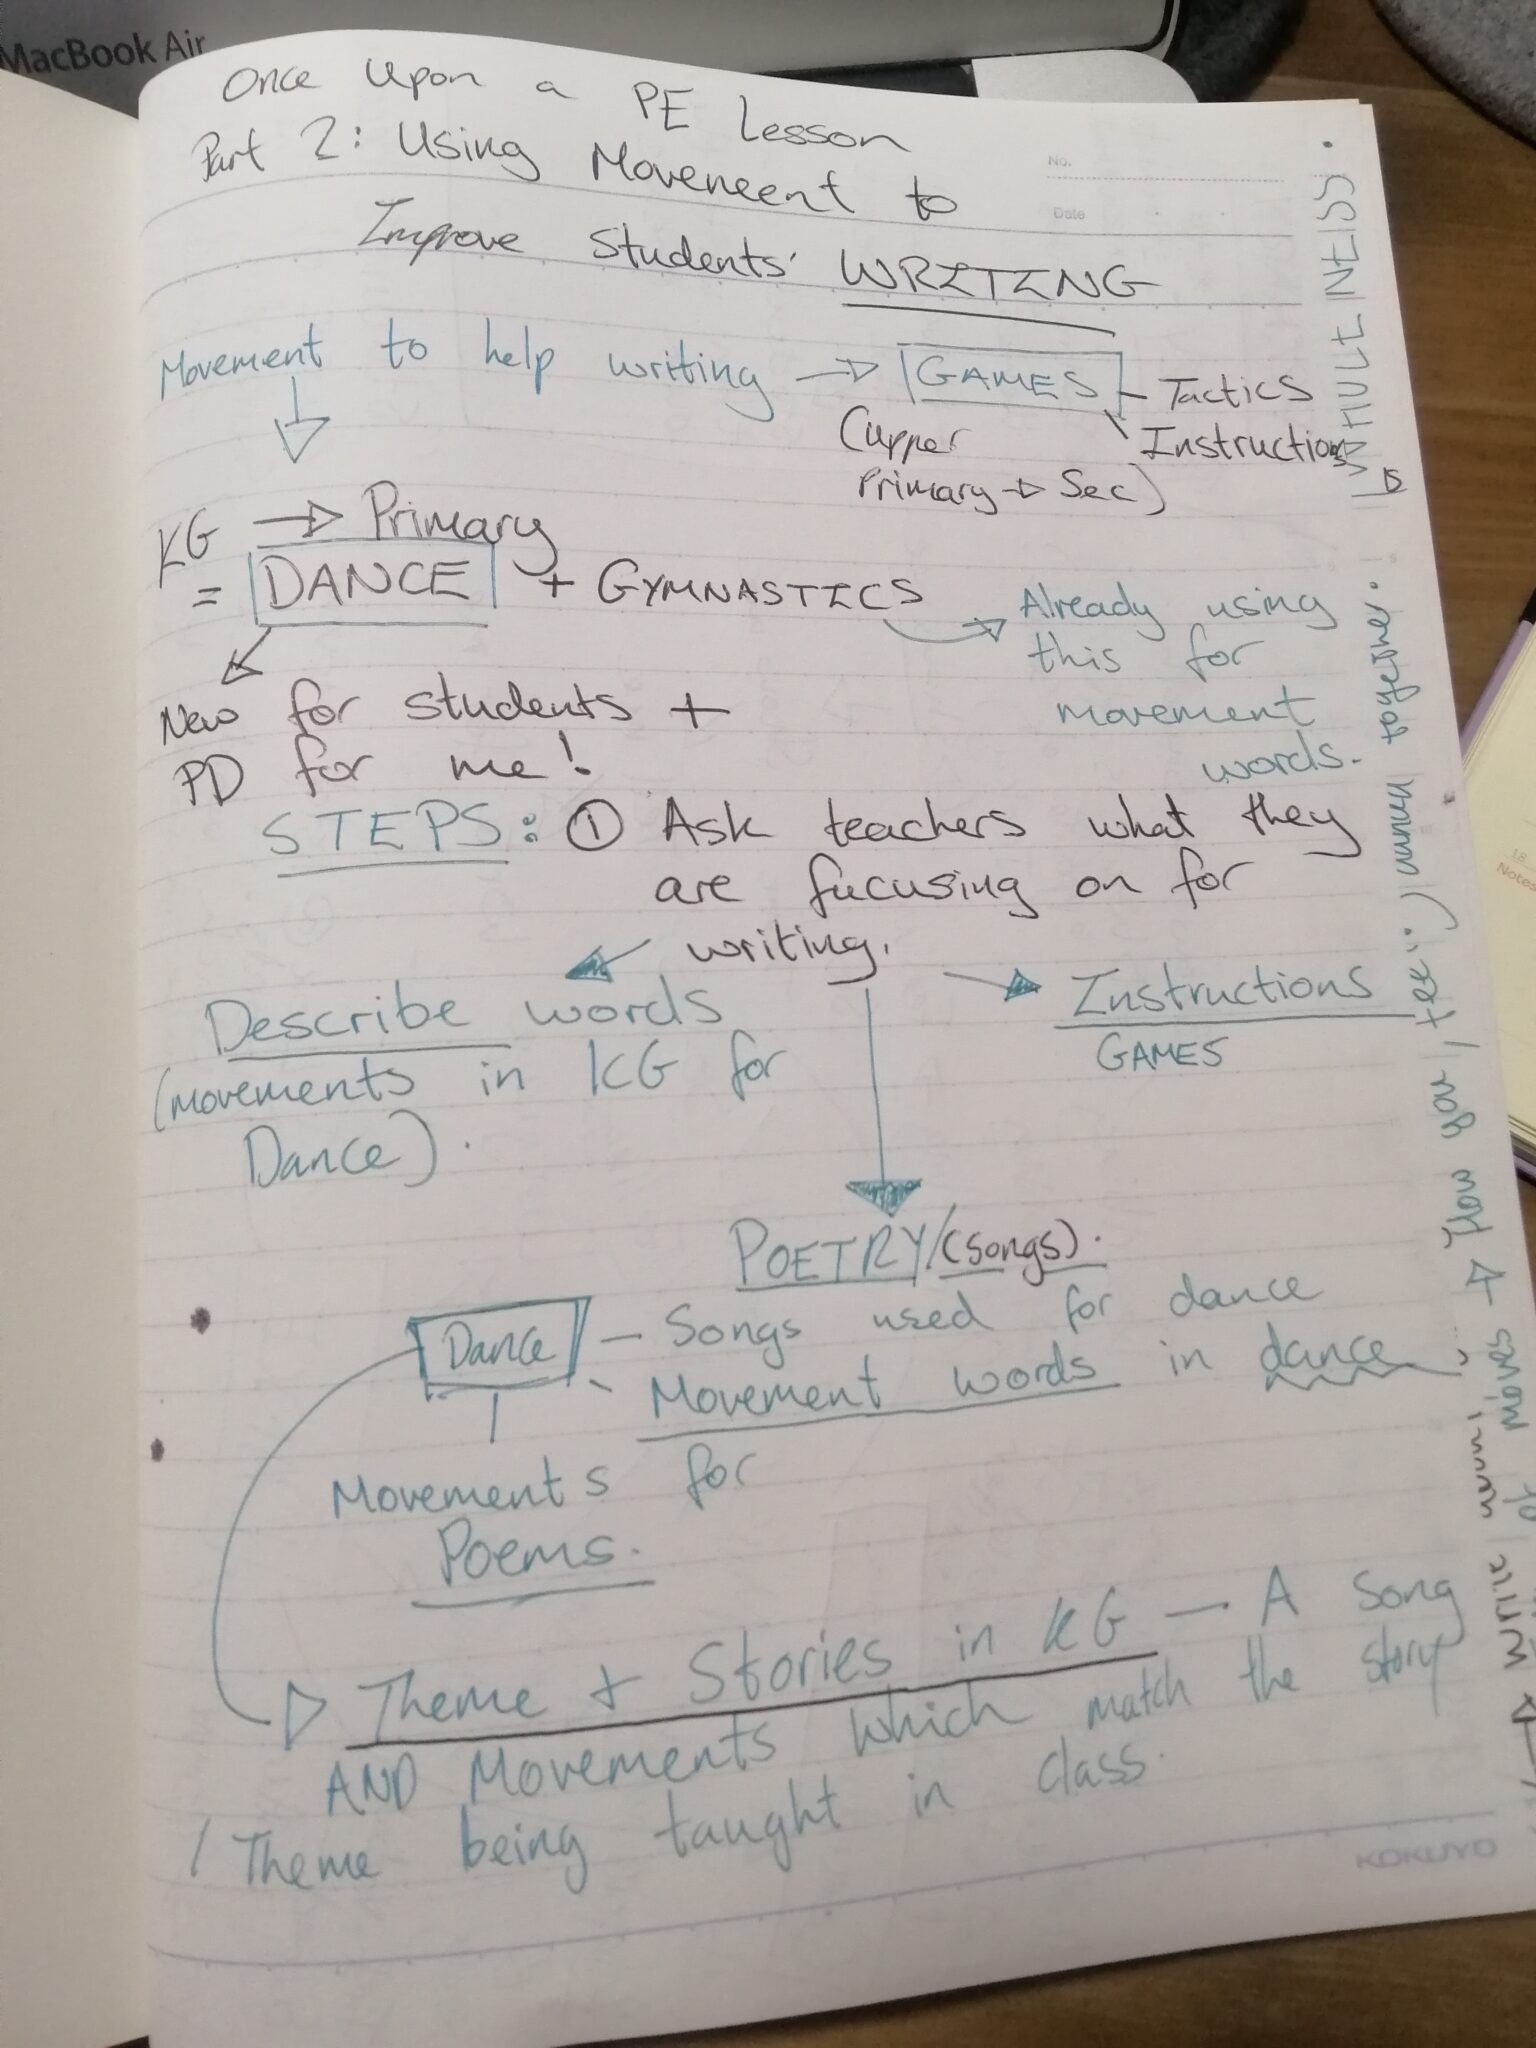 MacBook Air
Once Upon a PE Lesson
Part 2: Using Movement to
Improve Students' WRITING
No.
Date
Movement to help writing → GAMES - Tactics
Instructions
(Upper
Primary → Sec)
KG → Primary
= DANCE + GYMNASTICS
Already using
this for
movement
words.
New for students +
PD for me!
STEPS: ① Ask teachers what they
are focusing on for
writing.
Describe words
(movements in KG for
Dance).
Instructions
GAMES
POETRY/(songs).
Dance - Songs used for dance
Movement words in dance
Movements for
Poems.
Theme + Stories in KG - A Song
AND Movements which match the story
/ Theme being taught in class.
KOKUYO
together.
How you
moves
Write
Notes